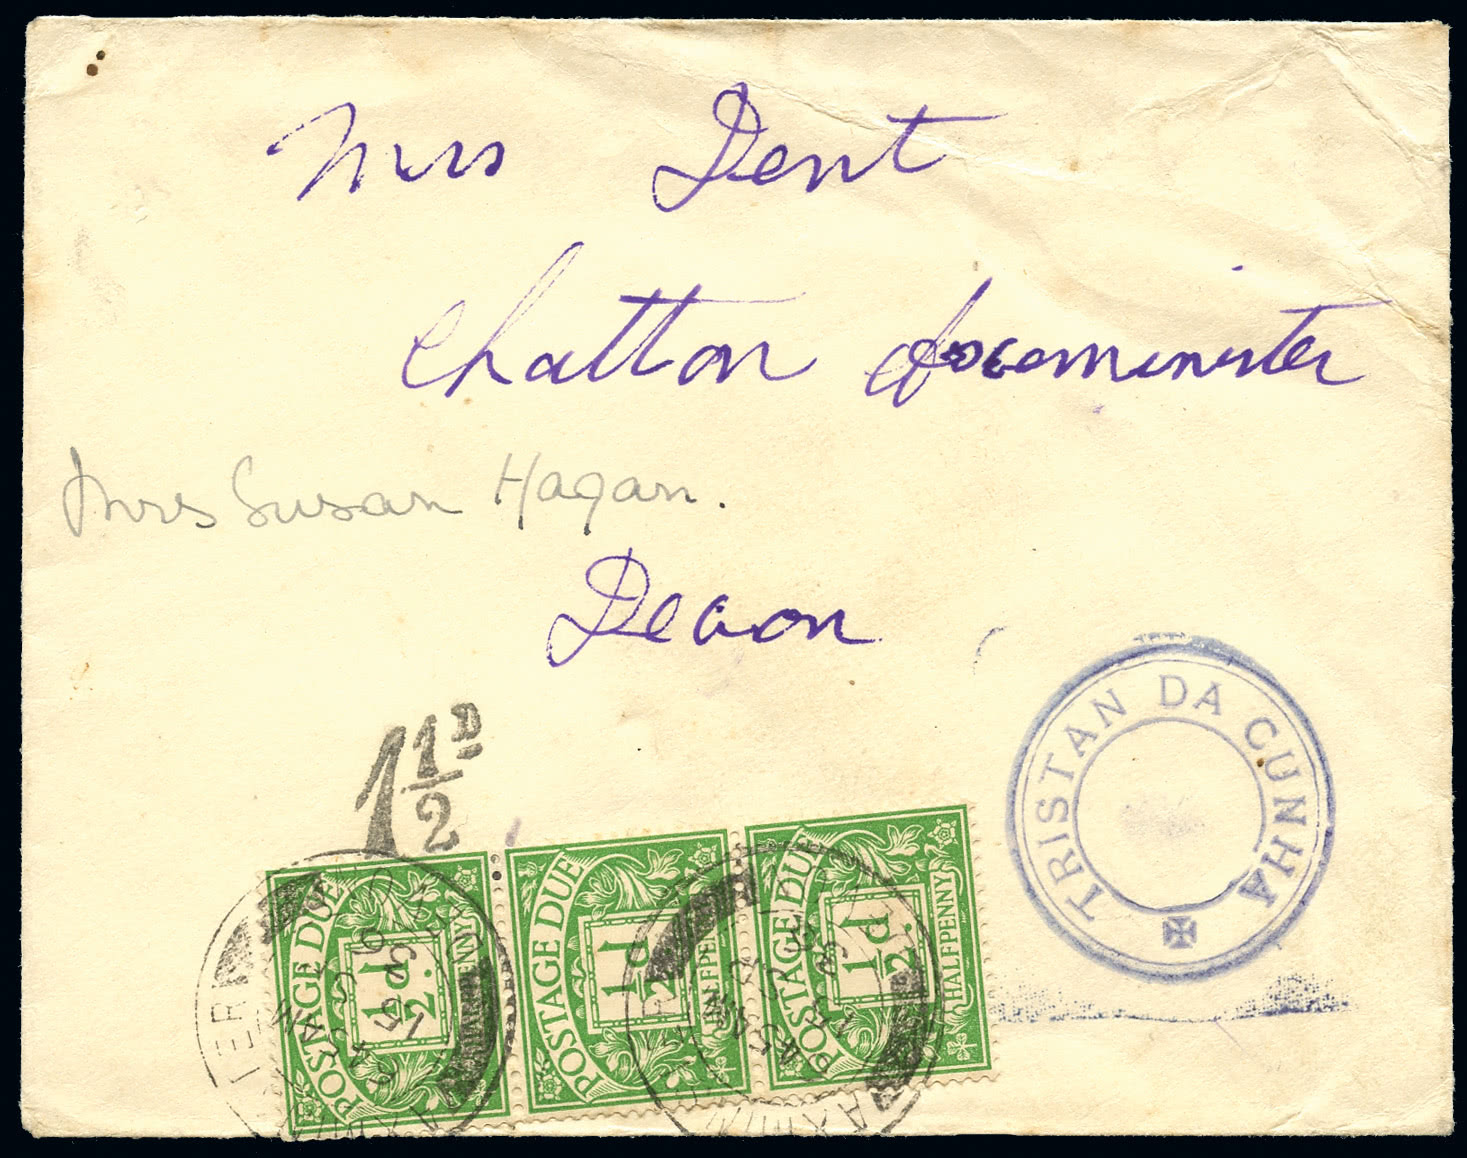 Mrs Dent
Chatton Axeminster
Mrs Susan Hagan.
Devon
TRISTAN DA CUNHA
1 1/2 D
POSTAGE DUE
1/2 d.
HALFPENNY
POSTAGE DUE
1/2 d.
HALFPENNY
POSTAGE DUE
1/2 d.
HALFPENNY